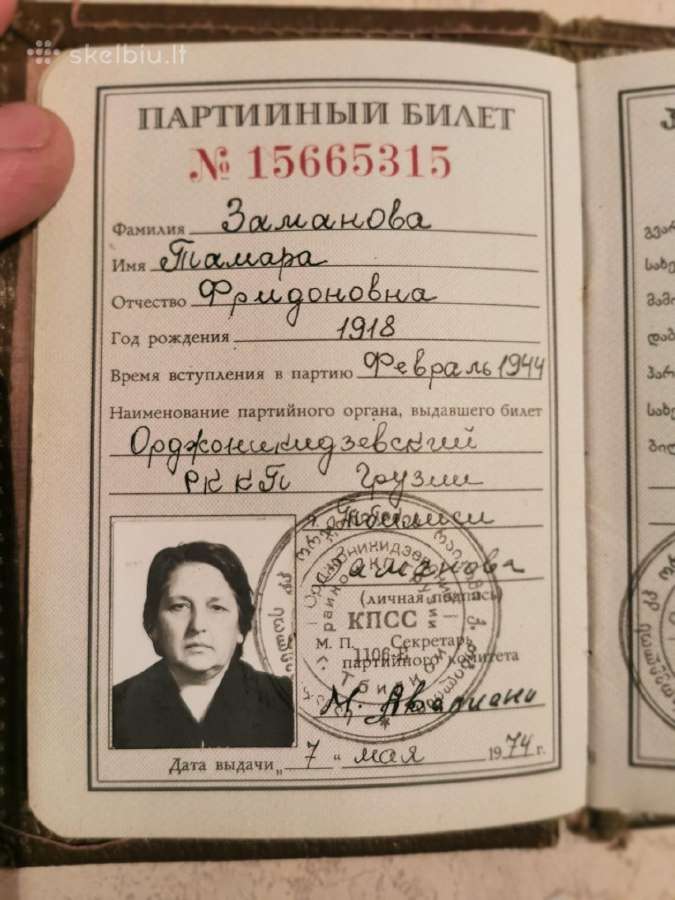 skelbiu.lt
ПАРТИЙНЫЙ БИЛЕТ
№ 15665315
Фамилия Заманова
Имя Тамара
Отчество Фридоновна
Год рождения 1918
Время вступления в партию Февраль 1944
Наименование партийного органа, выдавшего билет
Орджоникидзевский
РК КП Грузии
г. Тбилиси
Заманова
(личная подпись)
КПСС
М. П. Секретарь
1106-В
партийного комитета
г. Тбилиси
Дата выдачи „ 7 “ мая 1974 г.
გვარ
სახე
მამი
დაბ
პარ
სახე
ბილ